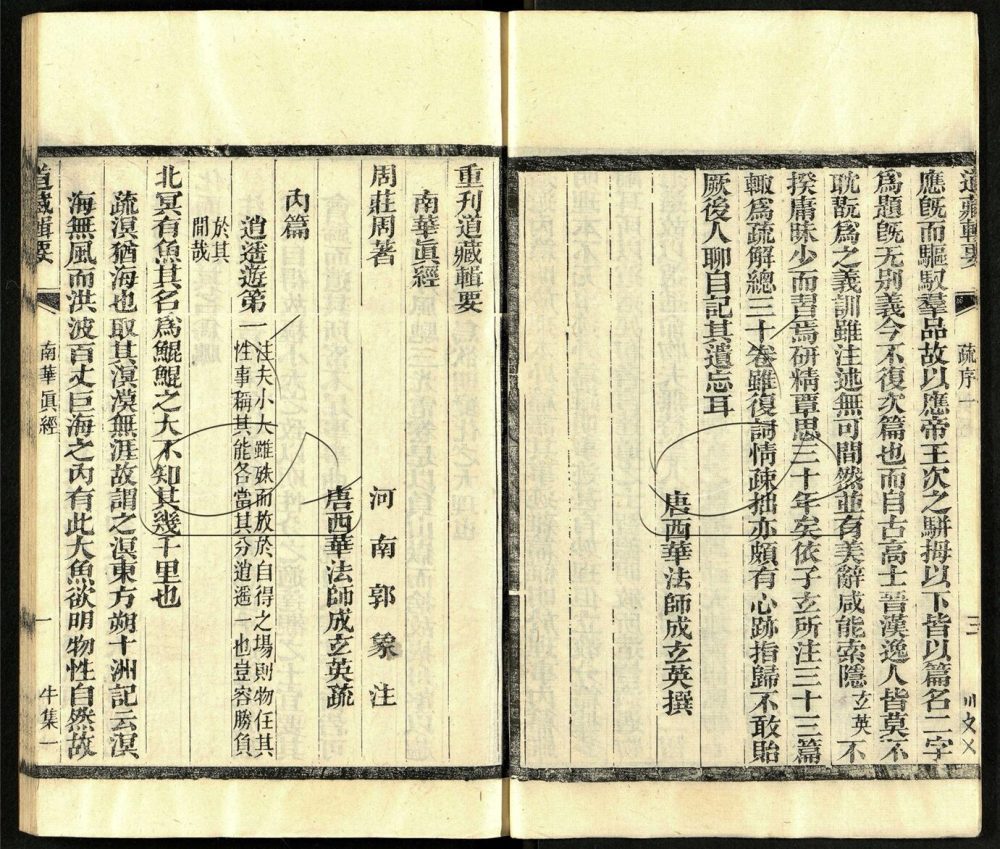 道藏輯要
疏序
應旣而驅馭羣品故以應帝王次之駢拇以下皆以篇名二字
爲題旣无別義今不復次篇也而自古高士晉漢逸人皆莫不
耽翫爲之義訓雖注述無可間然並有美辭咸能索隱玄英不
揆庸昧少而習焉研精覃思三十年矣依子玄所注三十三篇
輙爲疏解總三十卷雖復詞情疎拙亦頗有心跡指歸不敢貽
厥後人聊自記其遺忘耳
唐西華法師成玄英撰
重刊道藏輯要
南華眞經
周莊周著
河南郭象注
唐西華法師成玄英疏
內篇
逍遥遊第一注夫小大雖殊而放於自得之場則物任其
性事稱其能各當其分逍遥一也豈容勝負
於其
間哉
北冥有魚其名爲鯤鯤之大不知其幾千里也
疏溟猶海也取其溟漠無涯故謂之溟東方朔十洲記云溟
海無風而洪波百丈巨海之內有此大魚欲明物性自然故
道藏輯要
南華眞經
一
牛集一